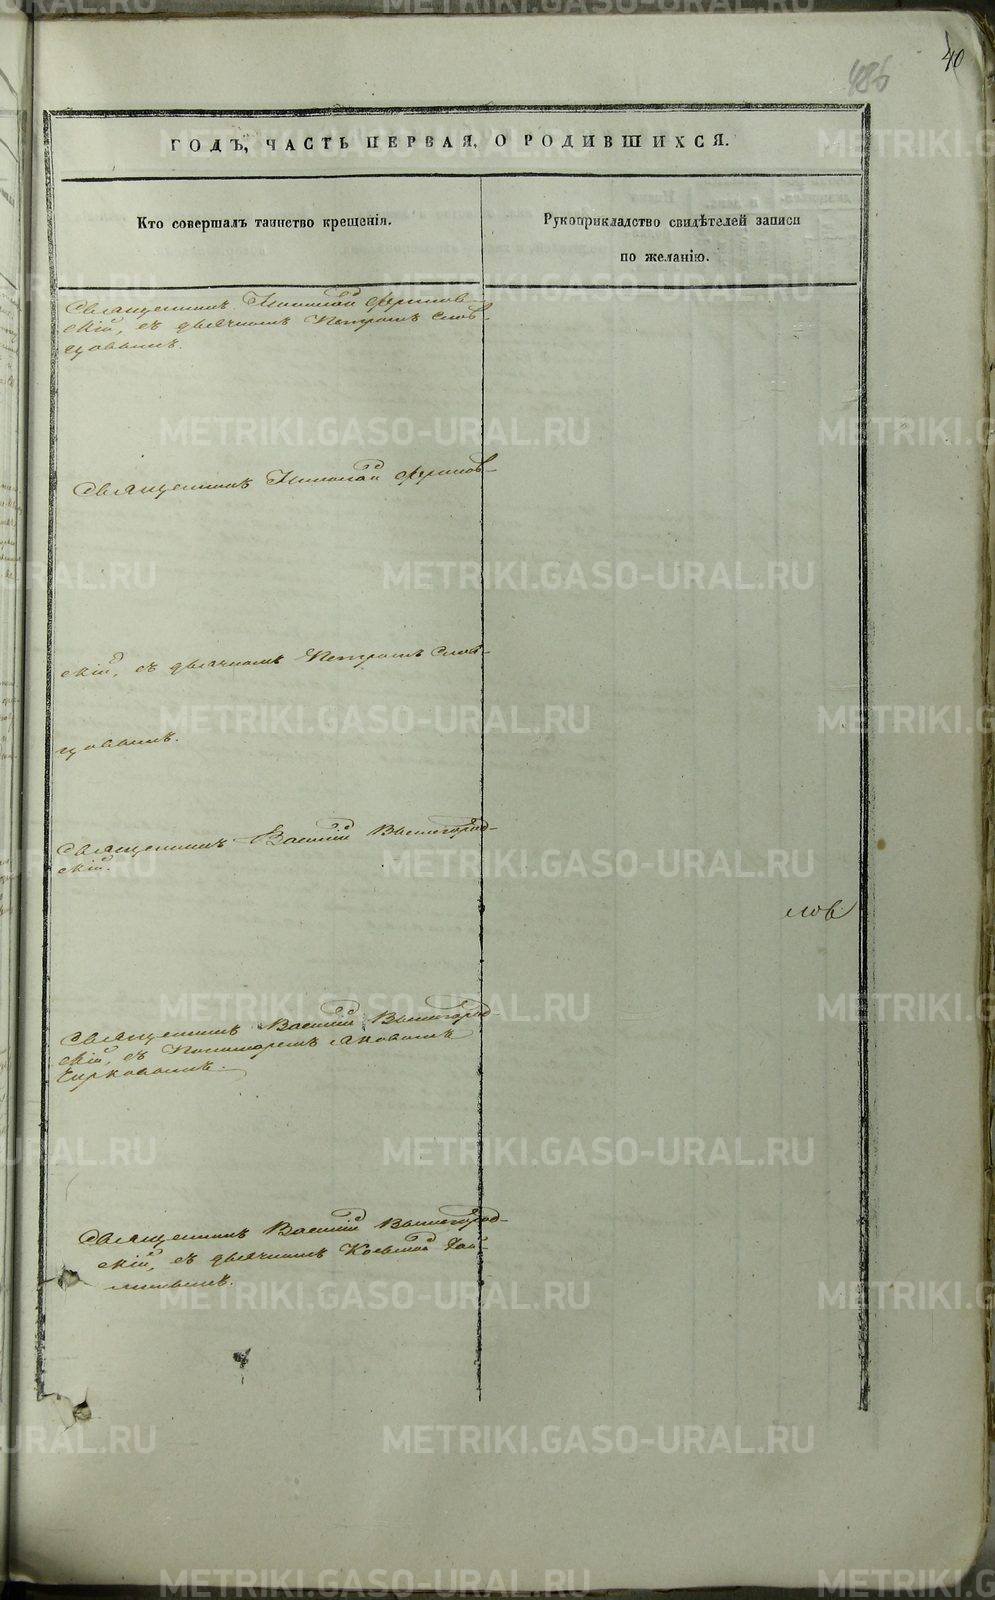 40
486
ГОДЪ, ЧАСТЬ ПЕРВАЯ, О РОДИВШИХСЯ.
Кто совершалъ таинство крещенія.
Рукоприкладство свидѣтелей записи
по желанію.
Священникъ Николай
скій, съ дьячкомъ Петромъ Слов-
цовымъ.
Священникъ Николай
скій, съ дьячкомъ Петромъ Слов-
цовымъ.
Священникъ Василій Вышегород-
скій.
лов
Священникъ Василій Вышегород-
скій, съ Пономаремъ Яковомъ
Чирковымъ.
Священникъ Василій Вышегород-
скій, съ дьячкомъ Козьмой
METRIKI.GASO-URAL.RU